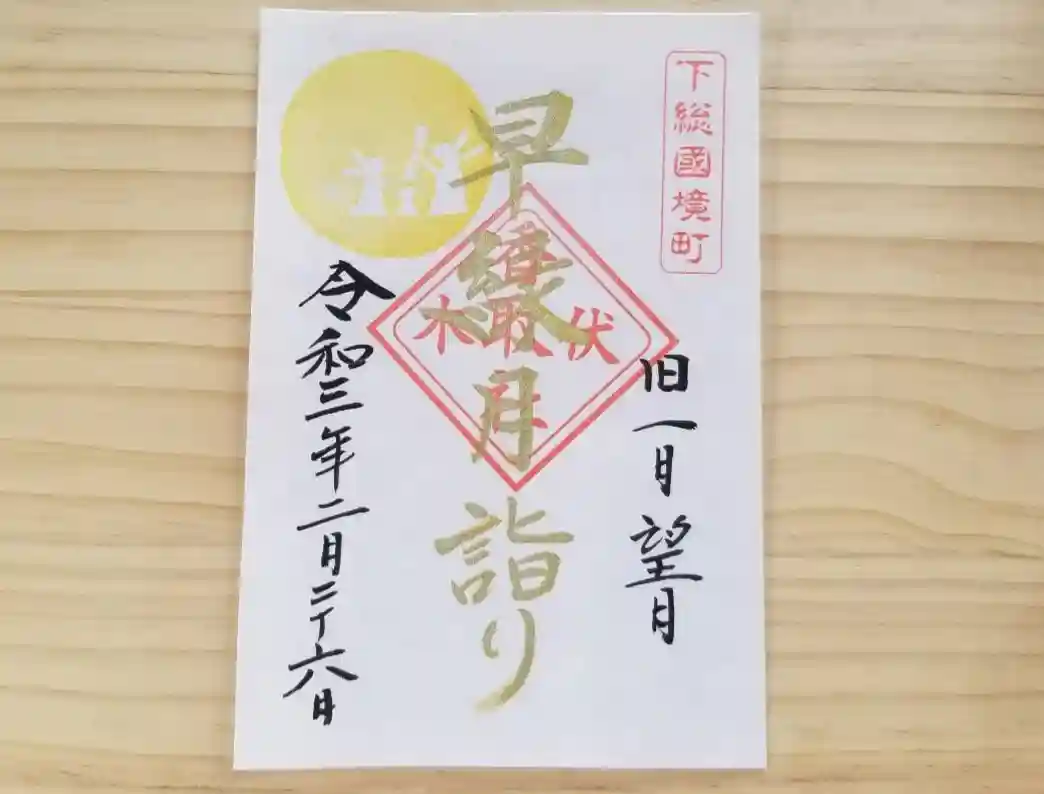 下総國境町
旧一月望月
早緑月詣り
伏木
香取社
令和三年二月二十六日